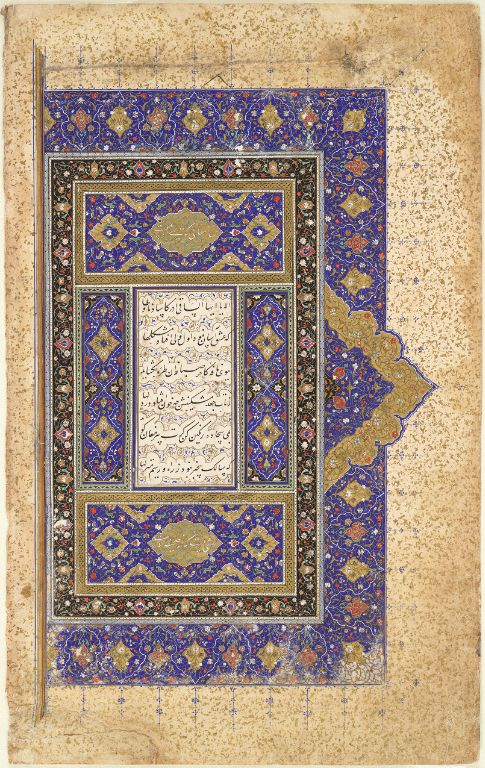 الا یا ایها الساقی ادر کاسا و ناولها
که عشق آسان نمود اول ولی افتاد مشکلها
ببوی نافه کاخر صبا زان طره بکشاید
ز تاب جعد مشکینش چه خون افتاد در دلها
بمی سجاده رنکین کن کرت پیر مغان کوید
که سالک بیخبر نبود ز راه و رسم منزلها